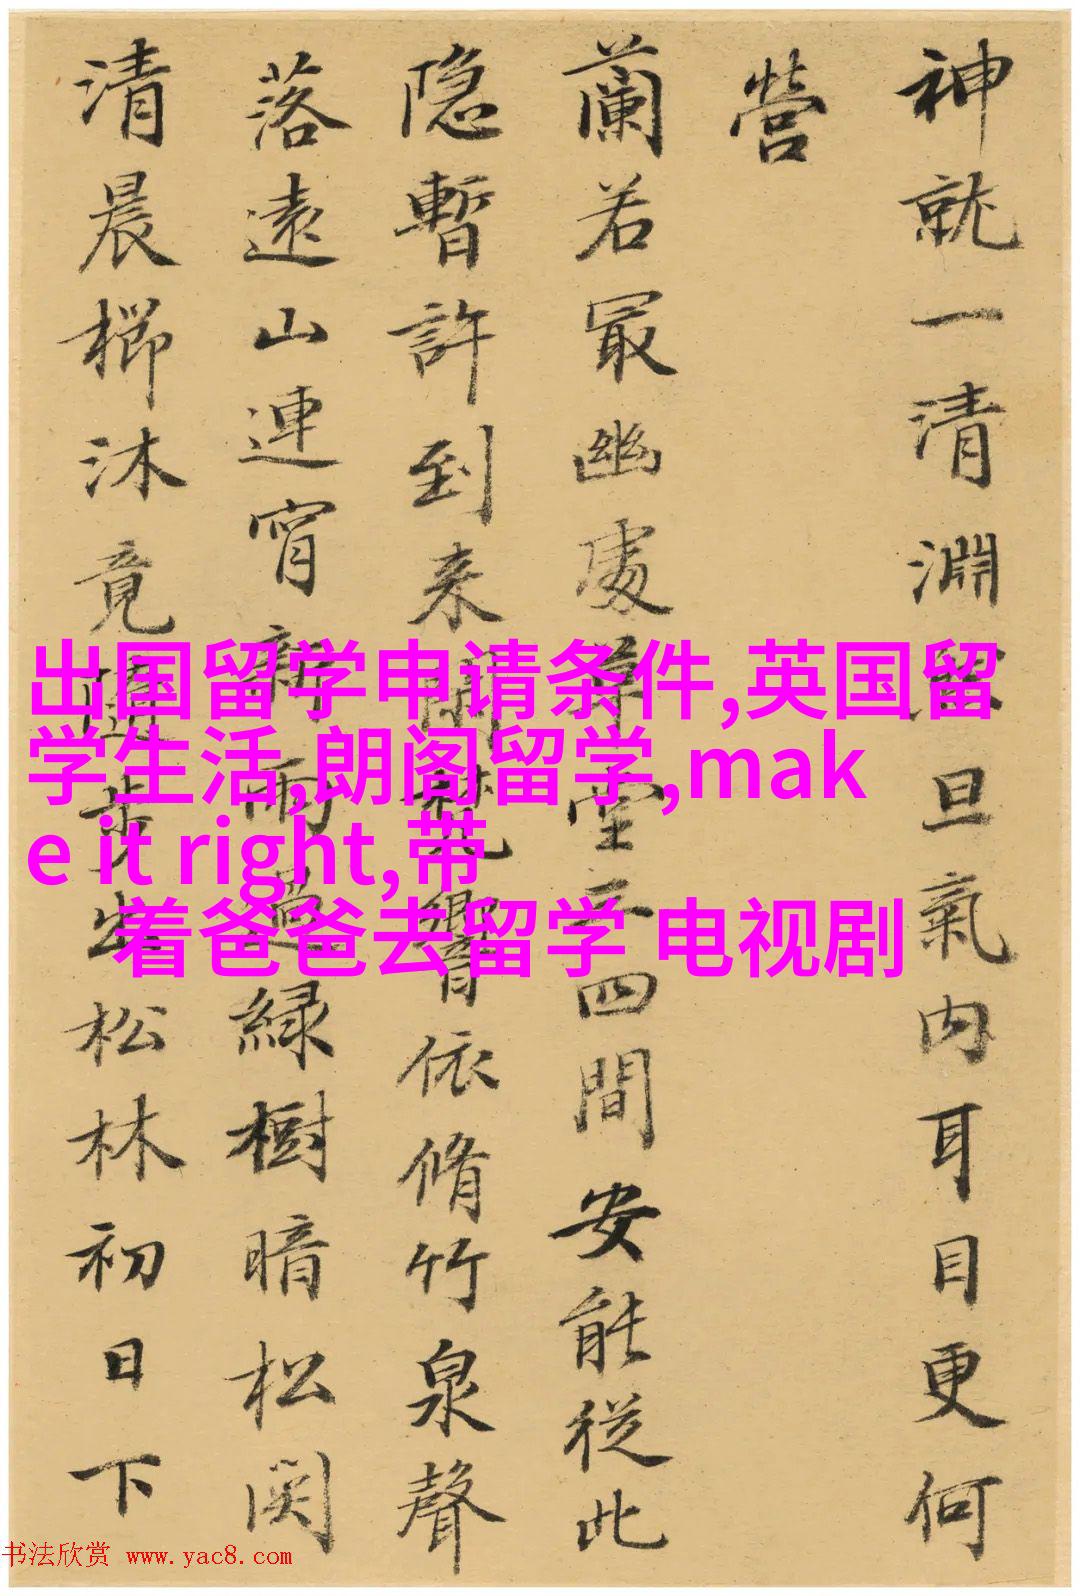 神就一清淵旦氣内耳目更何
營
蘭若冣幽處草堂三四間安能從此
隐暫許到来聞梵響依脩竹泉聲
落遠山連宵新雨過緑樹暗松関
清晨櫛沐竟步出松林初日下
出国留学申请条件,英国留
学生活,朗阁留学,mak
e it right,带
着爸爸去留学 电视剧
书法欣赏 www.yac8.com